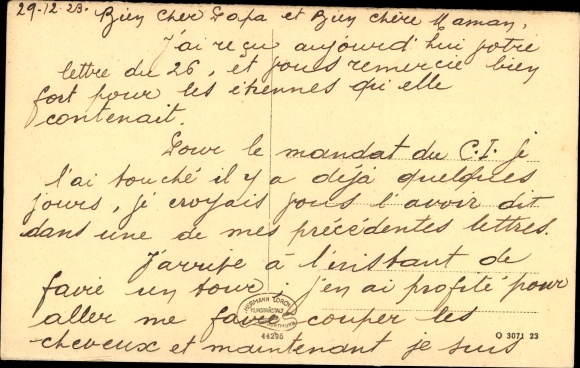 29-12-23. Bien cher Papa et Bien chère Maman,
J'ai reçu aujourd'hui votre
lettre du 26, et vous remercie bien
fort pour les étrennes qu'elle
contenait.
Pour le mandat du C.I. je
l'ai touché il y a déjà quelques
jours, je croyais vous l'avoir dit
dans une de mes précédentes lettres.
J'arrive à l'instant de
faire un tour, j'en ai profité pour
aller me faire couper les
cheveux et maintenant je suis
HERMANN LORCH
KUNSTANSTALT
DORTMUND
44295
O 3071 23